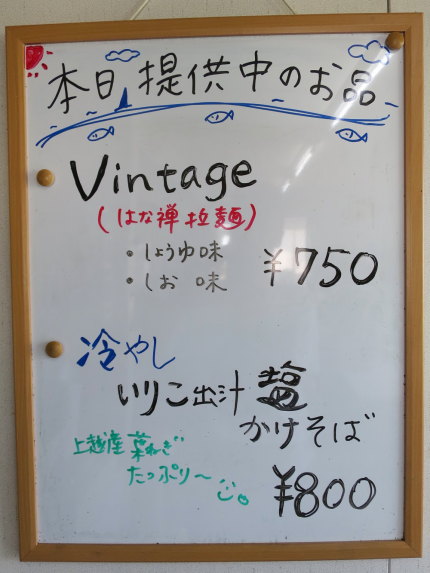 本日提供中のお品
Vintage
(はな禅拉麺)
・しょうゆ味
・しお味
¥750
冷やし
いりこ出汁 塩
かけそば
上越産 葉ねぎ
たっぷり〜
¥800